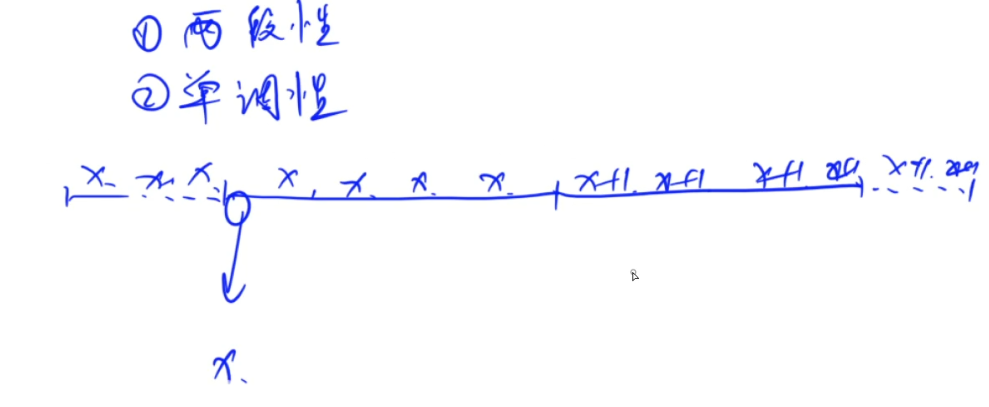 ① 两段性
② 单调性
x x x x x x x x+1 x+1 x+1 x+1 x+1 x+1
x